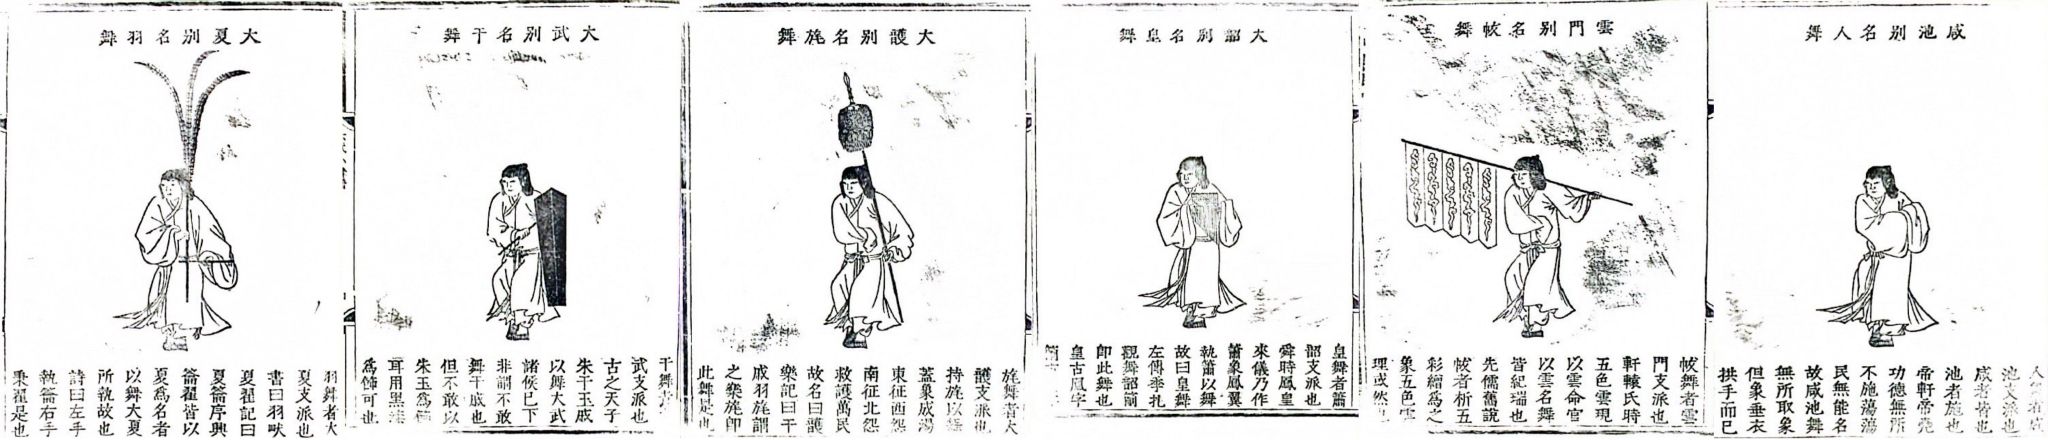 咸池别名人舞
池支派也
咸者皆也
池者施也
帝軒帝堯
功德無所
不施蕩蕩
民無能名
故咸池舞
無所取象
但象垂衣
拱手而已
雲門别名帗舞
帗舞者雲
門支派也
軒轅氏時
五色雲現
以雲命官
以雲名舞
皆紀瑞也
先儒舊說
帗者析五
彩繒爲之
象五色雲
理或然也
大韶别名皇舞
皇舞者簫
韶支派也
舜時鳳皇
來儀乃作
簫象鳳翼
執簫以舞
故曰皇舞
左傳季札
觀舞韶箾
卽此舞也
皇古鳳字
大護别名旄舞
旄舞者大
護支派也
持旄以舞
蓋象成湯
東征西怨
南征北怨
救護萬民
故名曰護
樂記曰干
戚羽旄謂
之樂旄卽
此舞是也
大武别名干舞
干舞者大
武支派也
古之天子
朱干玉戚
以舞大武
諸侯已下
非謂不敢
舞干戚也
但不敢以
朱玉爲飾
耳用黑漆
爲飾可也
大夏别名羽舞
羽舞者大
夏支派也
書曰羽畎
夏翟記曰
夏籥序興
籥翟皆以
夏爲名者
以舞大夏
所執故也
詩曰左手
執籥右手
秉翟是也